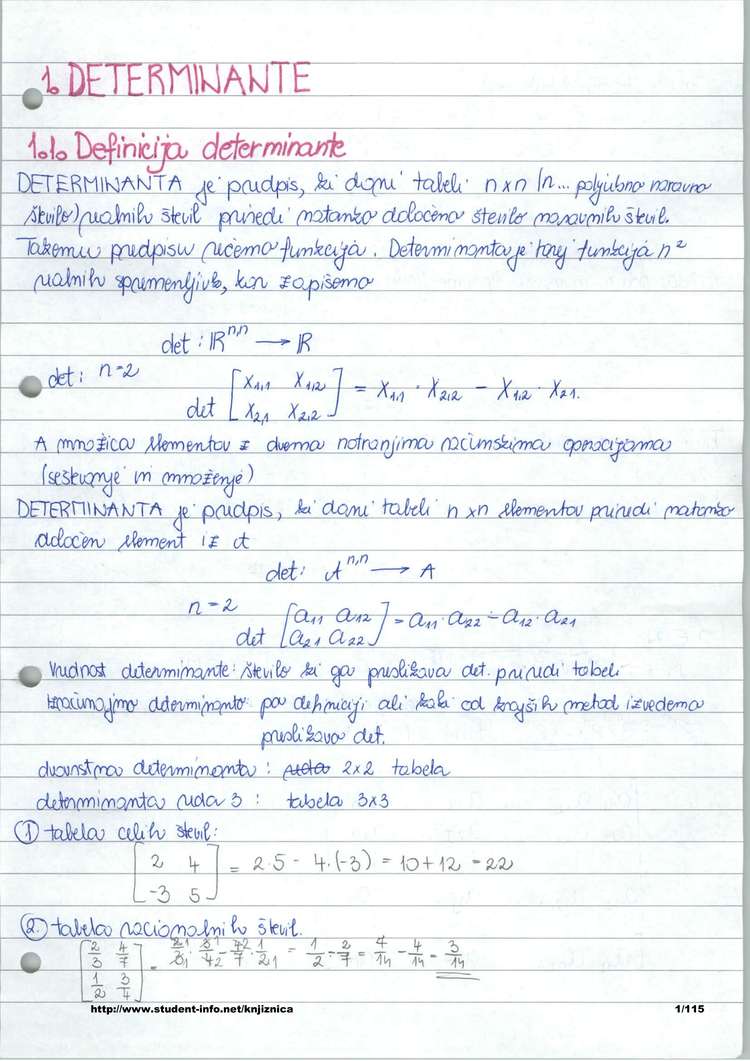 1. DETERMINANTE
1.1. Definicija determinante
DETERMINANTA je predpis, ki dani tabeli n×n (n... poljubno naravno
število) realnih števil priredi natanko določeno število naravnih števil.
Takemu predpisu rečemo funkcija. Determinanta je torej funkcija n²
realnih spremenljivk, kar zapišemo
det : ℝⁿ'ⁿ → ℝ
det : n=2
det [x₁,₁ x₁,₂; x₂,₁ x₂,₂] = x₁,₁ · x₂,₂ - x₁,₂ · x₂,₁.
A množica elementov z dvema notranjima računskima operacijama
(seštevanje in množenje)
DETERMINANTA je predpis, ki dani tabeli n×n elementov priredi natanko
določen element iz A
det: Aⁿ'ⁿ → A
n=2
det [a₁₁ a₁₂; a₂₁ a₂₂] = a₁₁·a₂₂ - a₁₂·a₂₁
Vrednost determinante: število ki ga preslikava det. priredi tabeli
Izračunajmo determinanto: po definiciji ali kaki od krajših metod izvedemo
preslikavo det.
dvovrstna determinanta : reda 2×2 tabela
determinanta reda 3 : tabela 3×3
① tabela celih števil:
[2 4; -3 5] = 2·5 - 4·(-3) = 10+12 = 22
② tabela racionalnih števil.
[2/3 4/7; 1/2 3/4] = 2/3 · 3/4 - 4/7 · 1/2 = 1/2 - 2/7 = 4/14 - 4/14 = 3/14
http://www.student-info.net/knjiznica 1/115